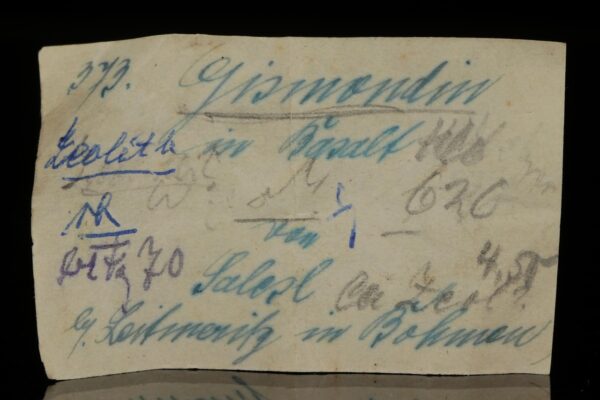 373. Gismondin
Zeolith in Basalt
626
rh von
70 Salesl 4,50
Ca Zeol.
b/ Leitmeritz in Bohmen